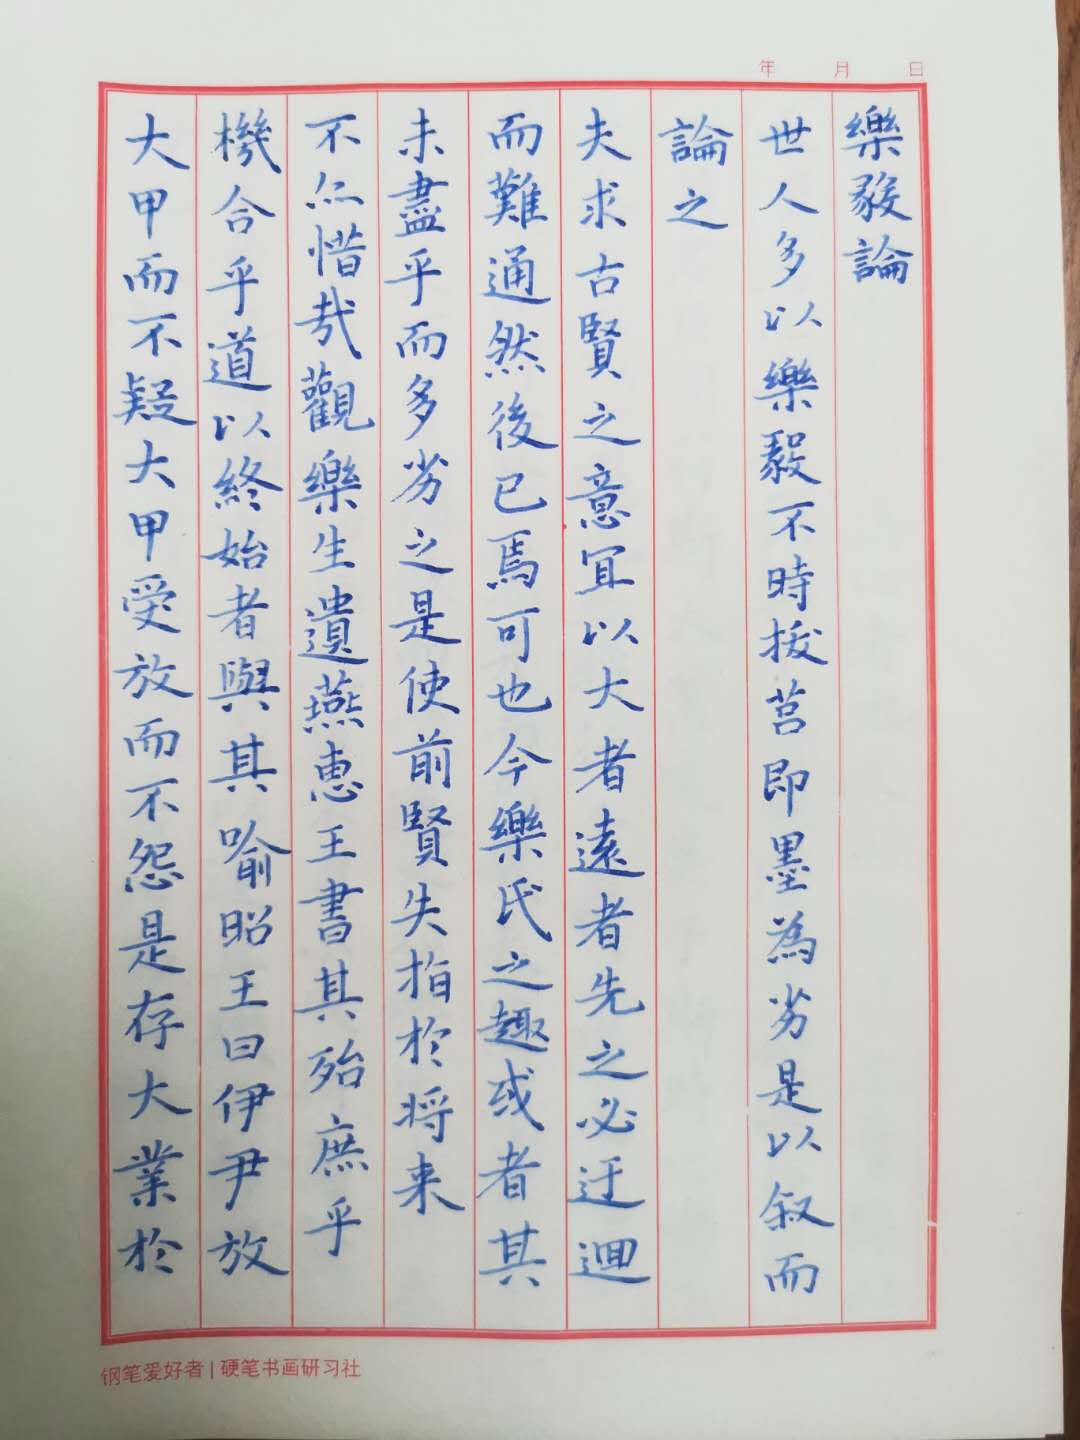 年 月 日
樂毅論
世人多以樂毅不時拔莒即墨為劣是以叙而
論之
夫求古賢之意宜以大者遠者先之必迂迴
而難通然後已焉可也今樂氏之趣或者其
未盡乎而多劣之是使前賢失指於将来
不亦惜哉觀樂生遺燕惠王書其殆庶乎
機合乎道以終始者與其喻昭王曰伊尹放
大甲而不疑大甲受放而不怨是存大業於
钢笔爱好者 | 硬笔书画研习社